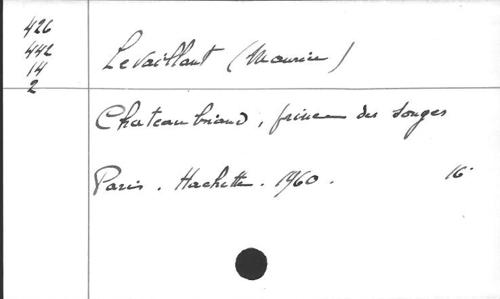 426
442
14
2
Levaillant (Maurice)
Chateaubriand, prince des songes
Paris. Hachette. 1960. 16°